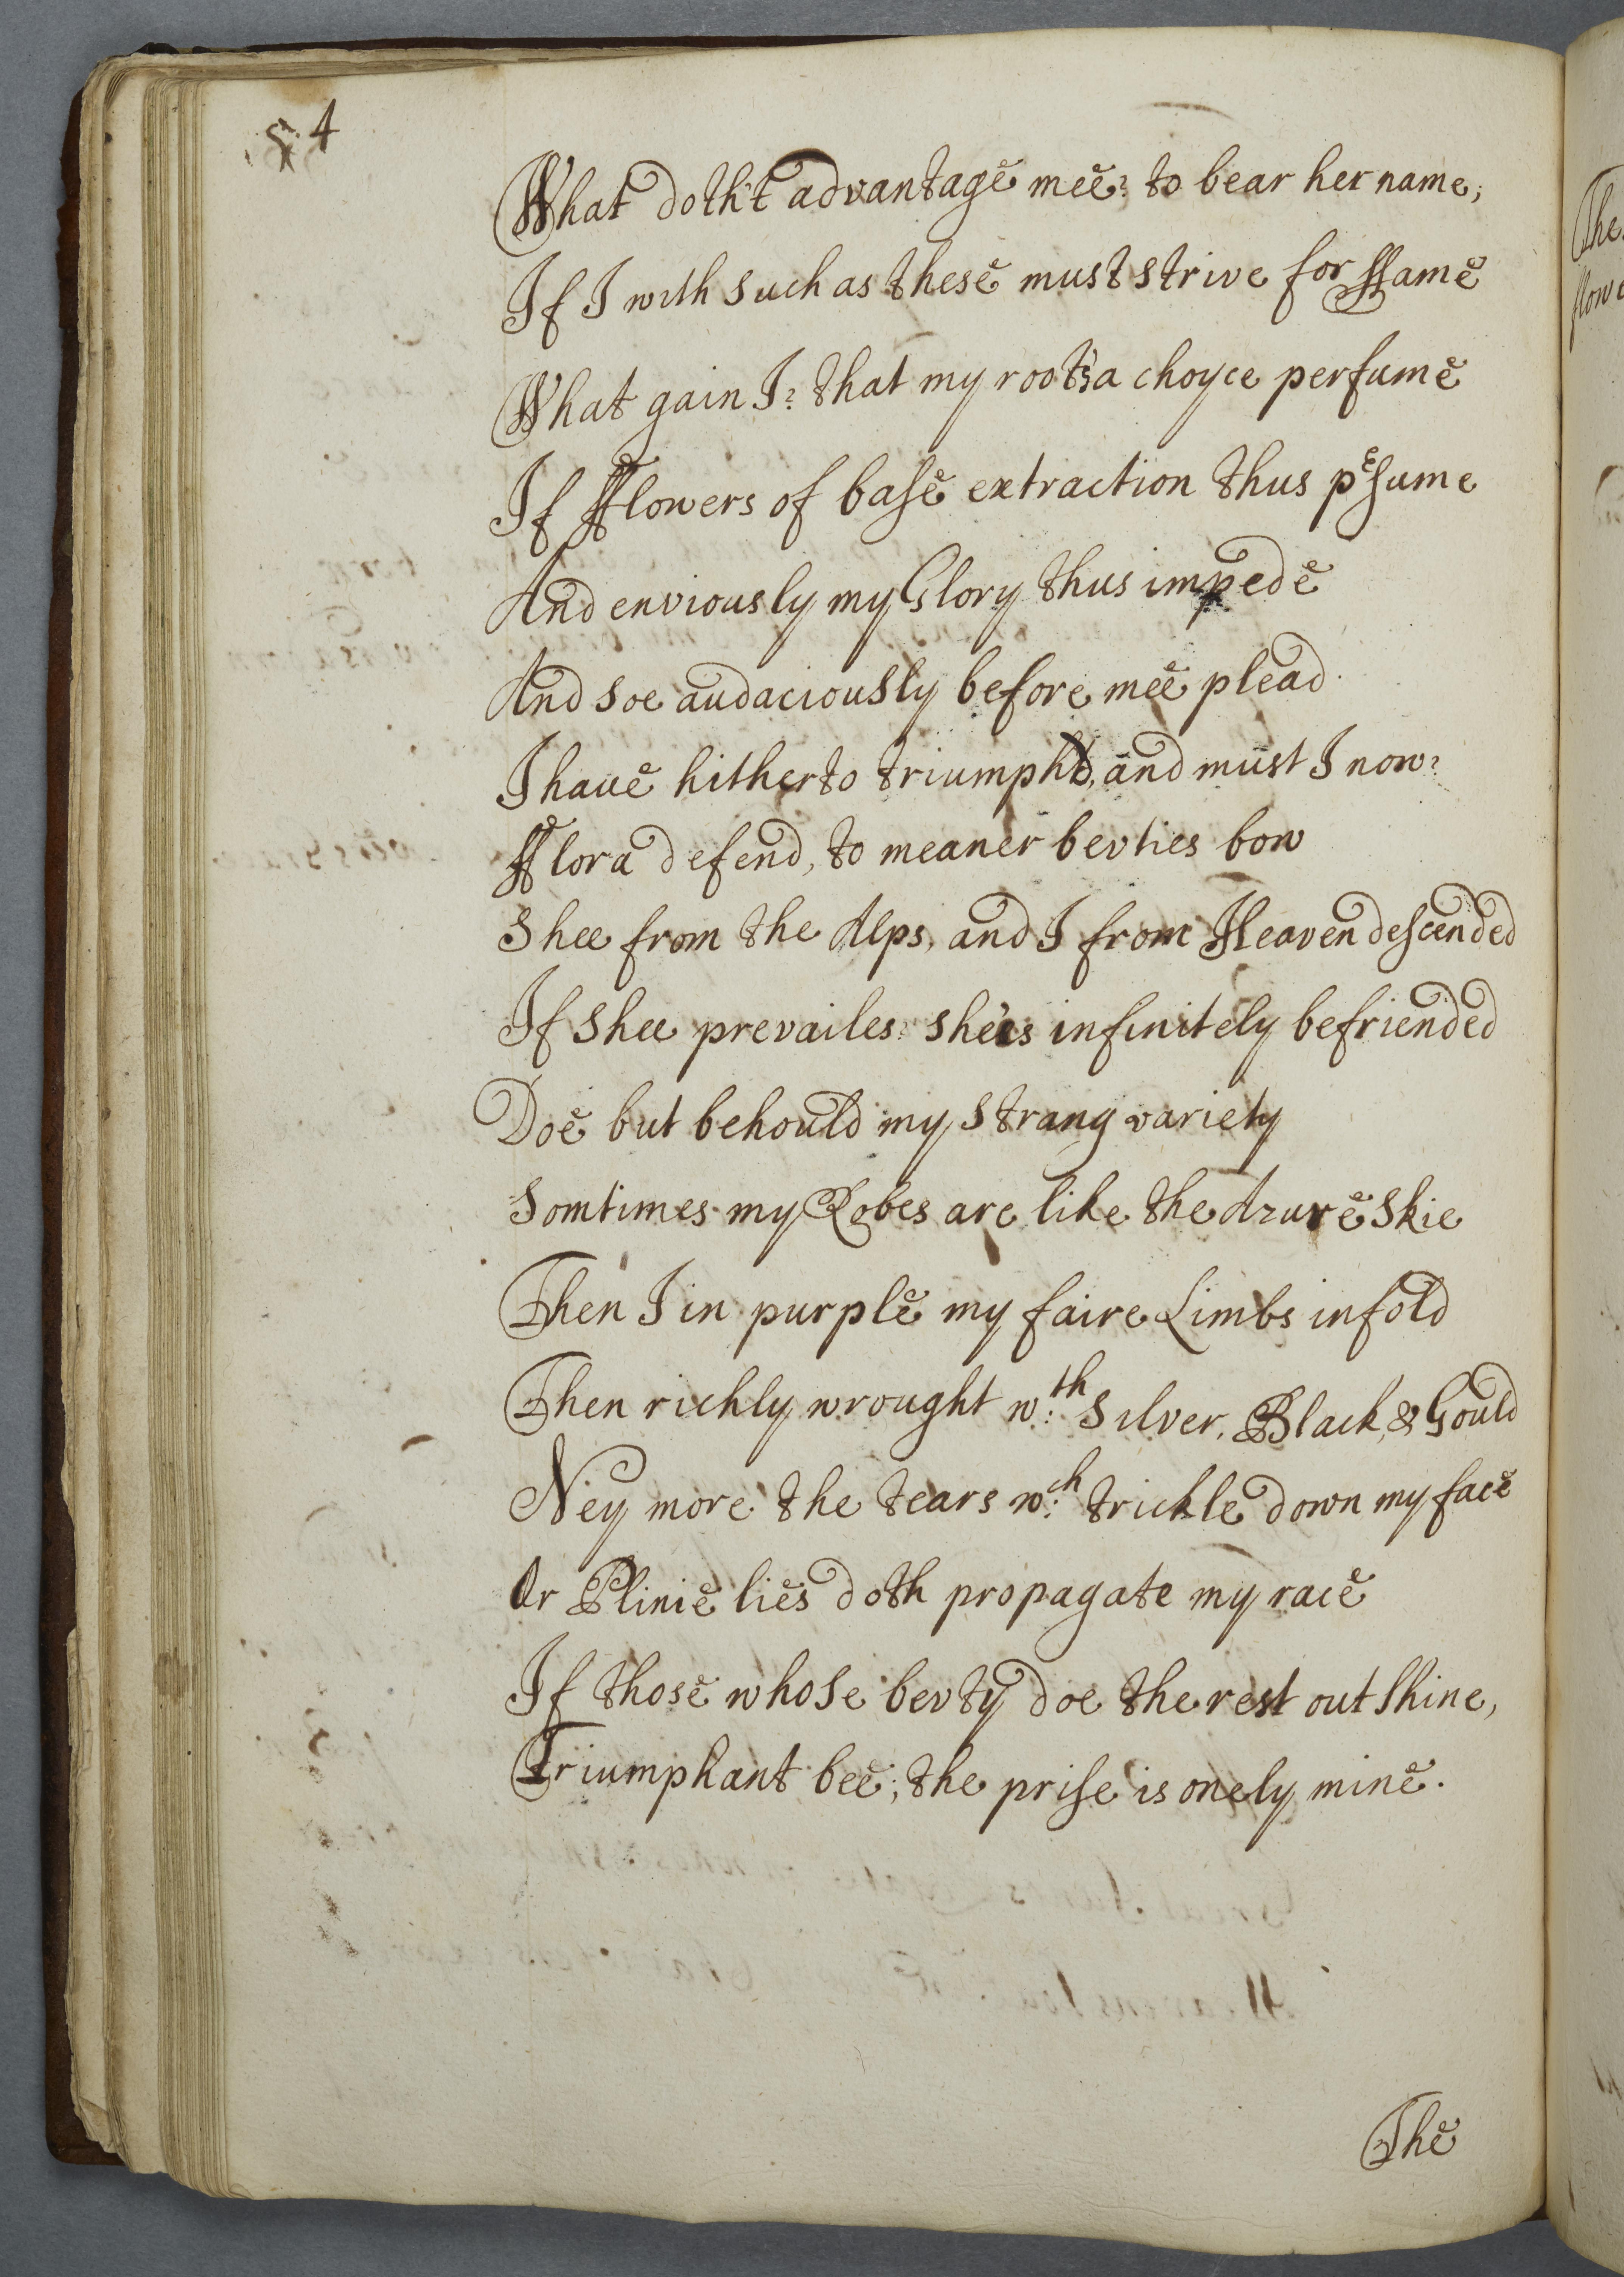 54
What doth't advantage mee? to bear her name,
If I with such as these must strive for ffame
What gain I? that my root's a choyce perfume
If fflowers of base extraction thus pesume
And enviously my Glory thus impede
And soe audaciously before mee plead
I haue hitherto triumph'd, and must I now?
fflora defend, to meaner bevties bow
Shee from the Alps, and I from Heaven descended
If shee prevailes: shee's infinitely befriended
Doe but behould my strang variety
Somtimes my Robes are like the Azure Skie
Then I in purple my faire Limbs infold
Then richly wrought wth Silver, Black, & Gould
Ney more the tears wch trickle down my face
Or Plinie lies doth propagate my race
If those whose bevty doe the rest out shine,
Triumphant bee; the prise is onely mine.
The
The
flow